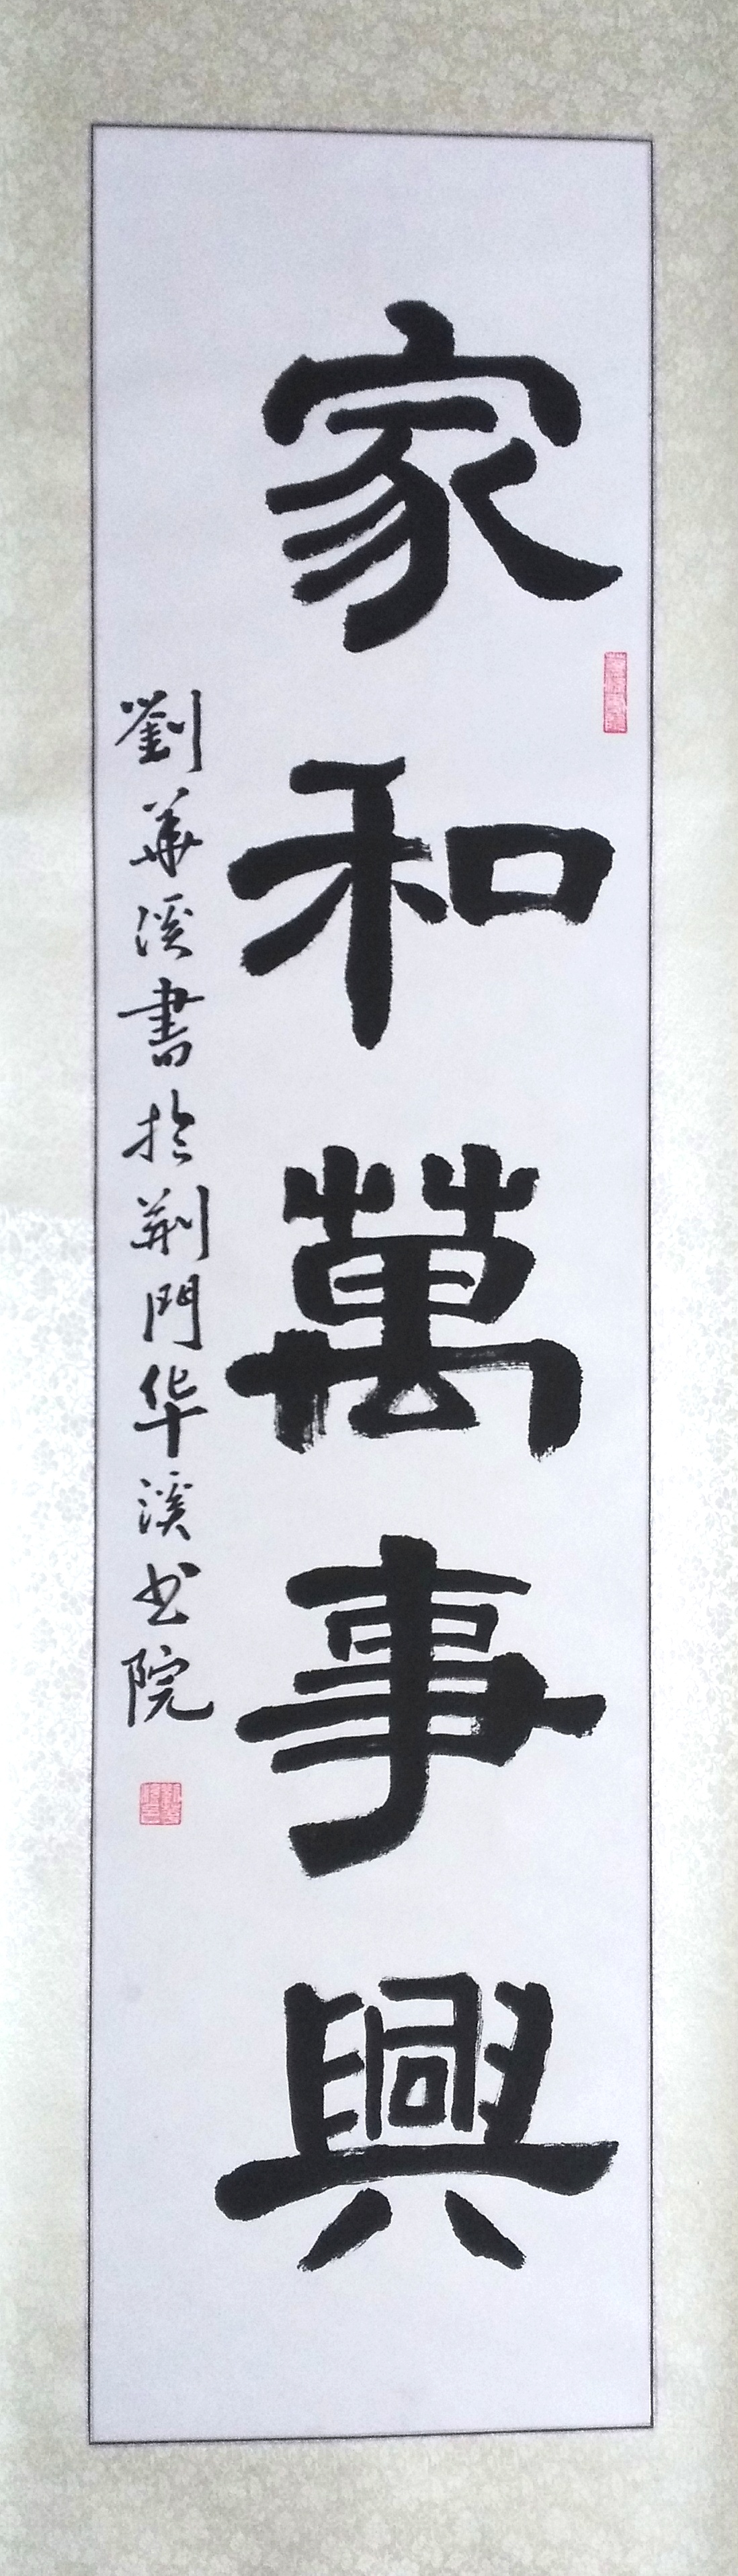 家和萬事興
劉華溪書於荆門华溪书院